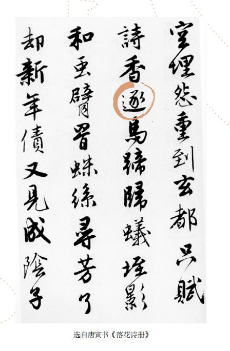 空埋怨重到玄都只賦
詩香逐馬蹄歸蟻垤影
和虫臂罥蛛絲尋芳了
却新年債又見成陰子
选自唐寅书《落花诗册》